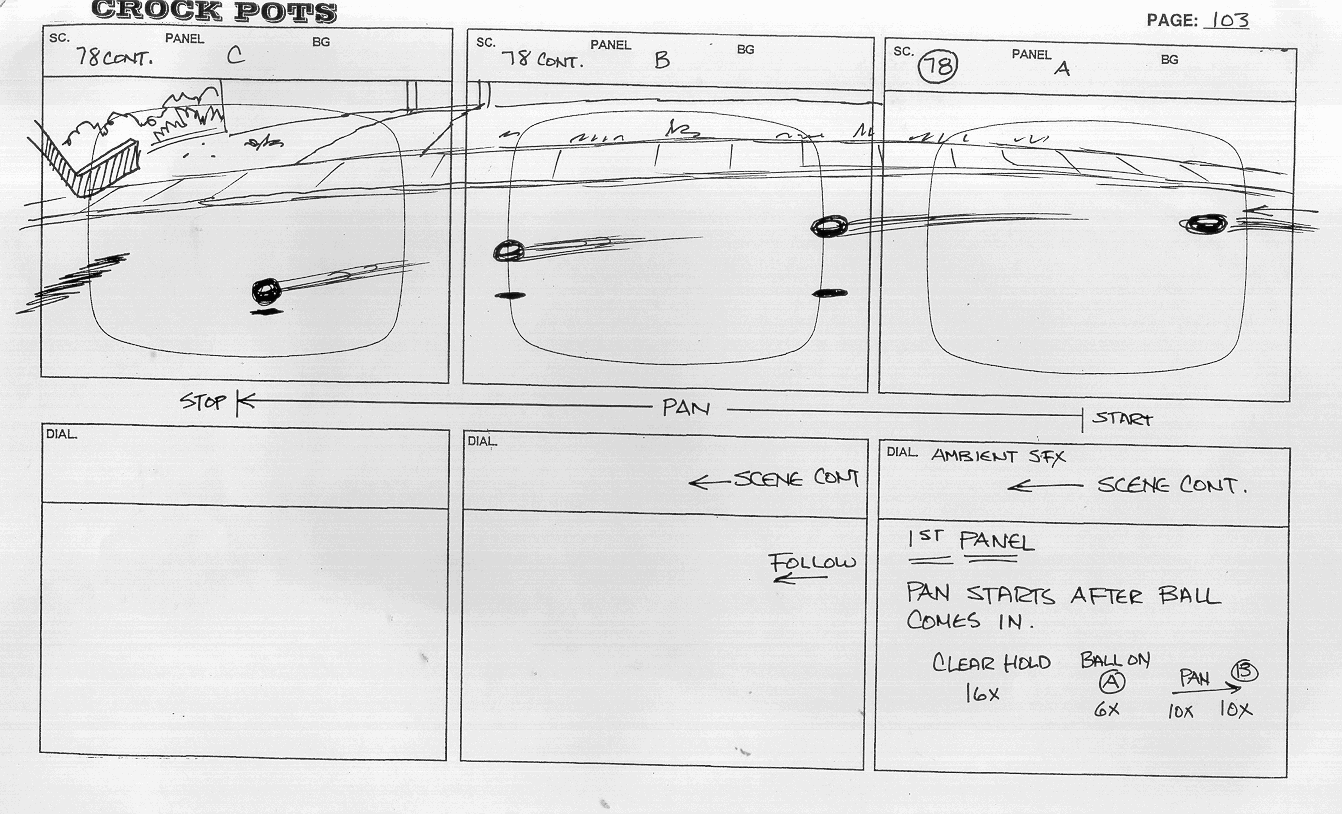 CROCK POTS
PAGE: 103
SC. PANEL BG
78 CONT. C
SC. PANEL BG
78 CONT. B
SC. PANEL BG
78 A
STOP PAN START
DIAL.
DIAL.
← SCENE CONT
FOLLOW
←
DIAL. AMBIENT SFX
← SCENE CONT.
1ST PANEL
PAN STARTS AFTER BALL
COMES IN.
CLEAR HOLD BALL ON PAN B
16X A
6X 10X 10X